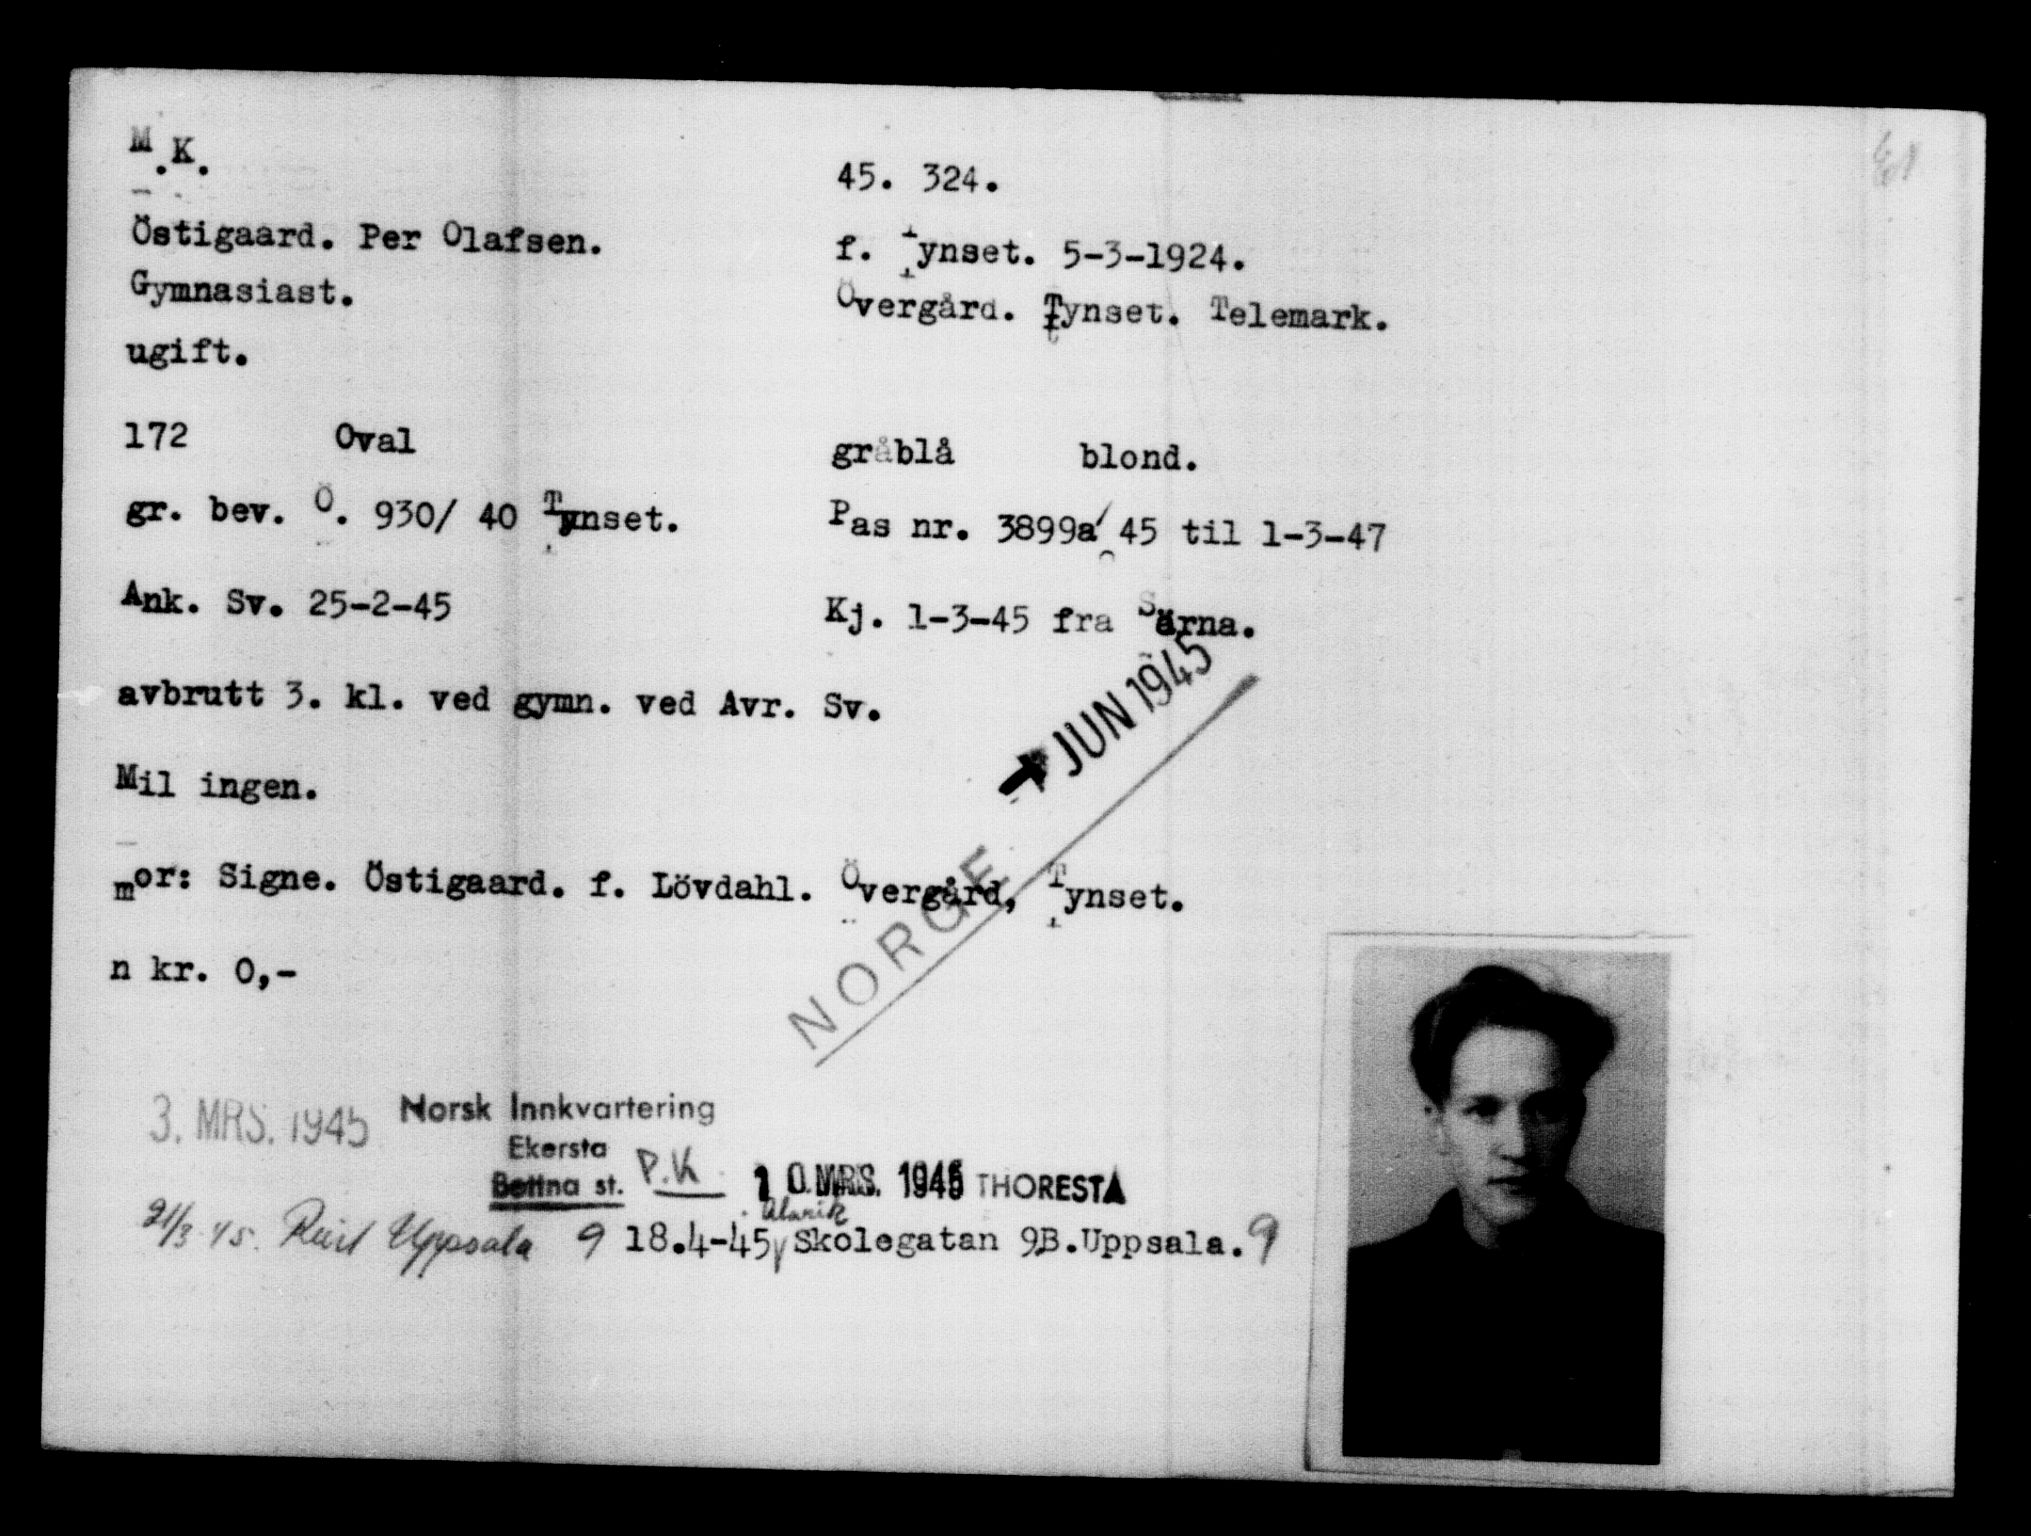 M.K.
45. 324.
Östigaard. Per Olafsen.
f. Tynset. 5-3-1924.
Gymnasiast.
Övergård. Tynset. Telemark.
ugift.
172 Oval gråblå blond.
gr. bev. Ö. 930/ 40 Tynset.
Pas nr. 3899a/45 til 1-3-47
Ank. Sv. 25-2-45
Kj. 1-3-45 fra Särna.
avbrutt 3. kl. ved gymn. ved Avr. Sv.
JUN 1945
Mil ingen.
mor: Signe. Östigaard. f. Lövdahl. Övergård, Tynset.
NORGE
n kr. 0,-
3. MRS. 1945 Norsk Innkvartering
Ekersta
Bettna st. P.K 10. MRS. 1945 THORESTA
Alarik
21/3 45. Uppsala 9 18.4-45 Skolegatan 9B.Uppsala. 9